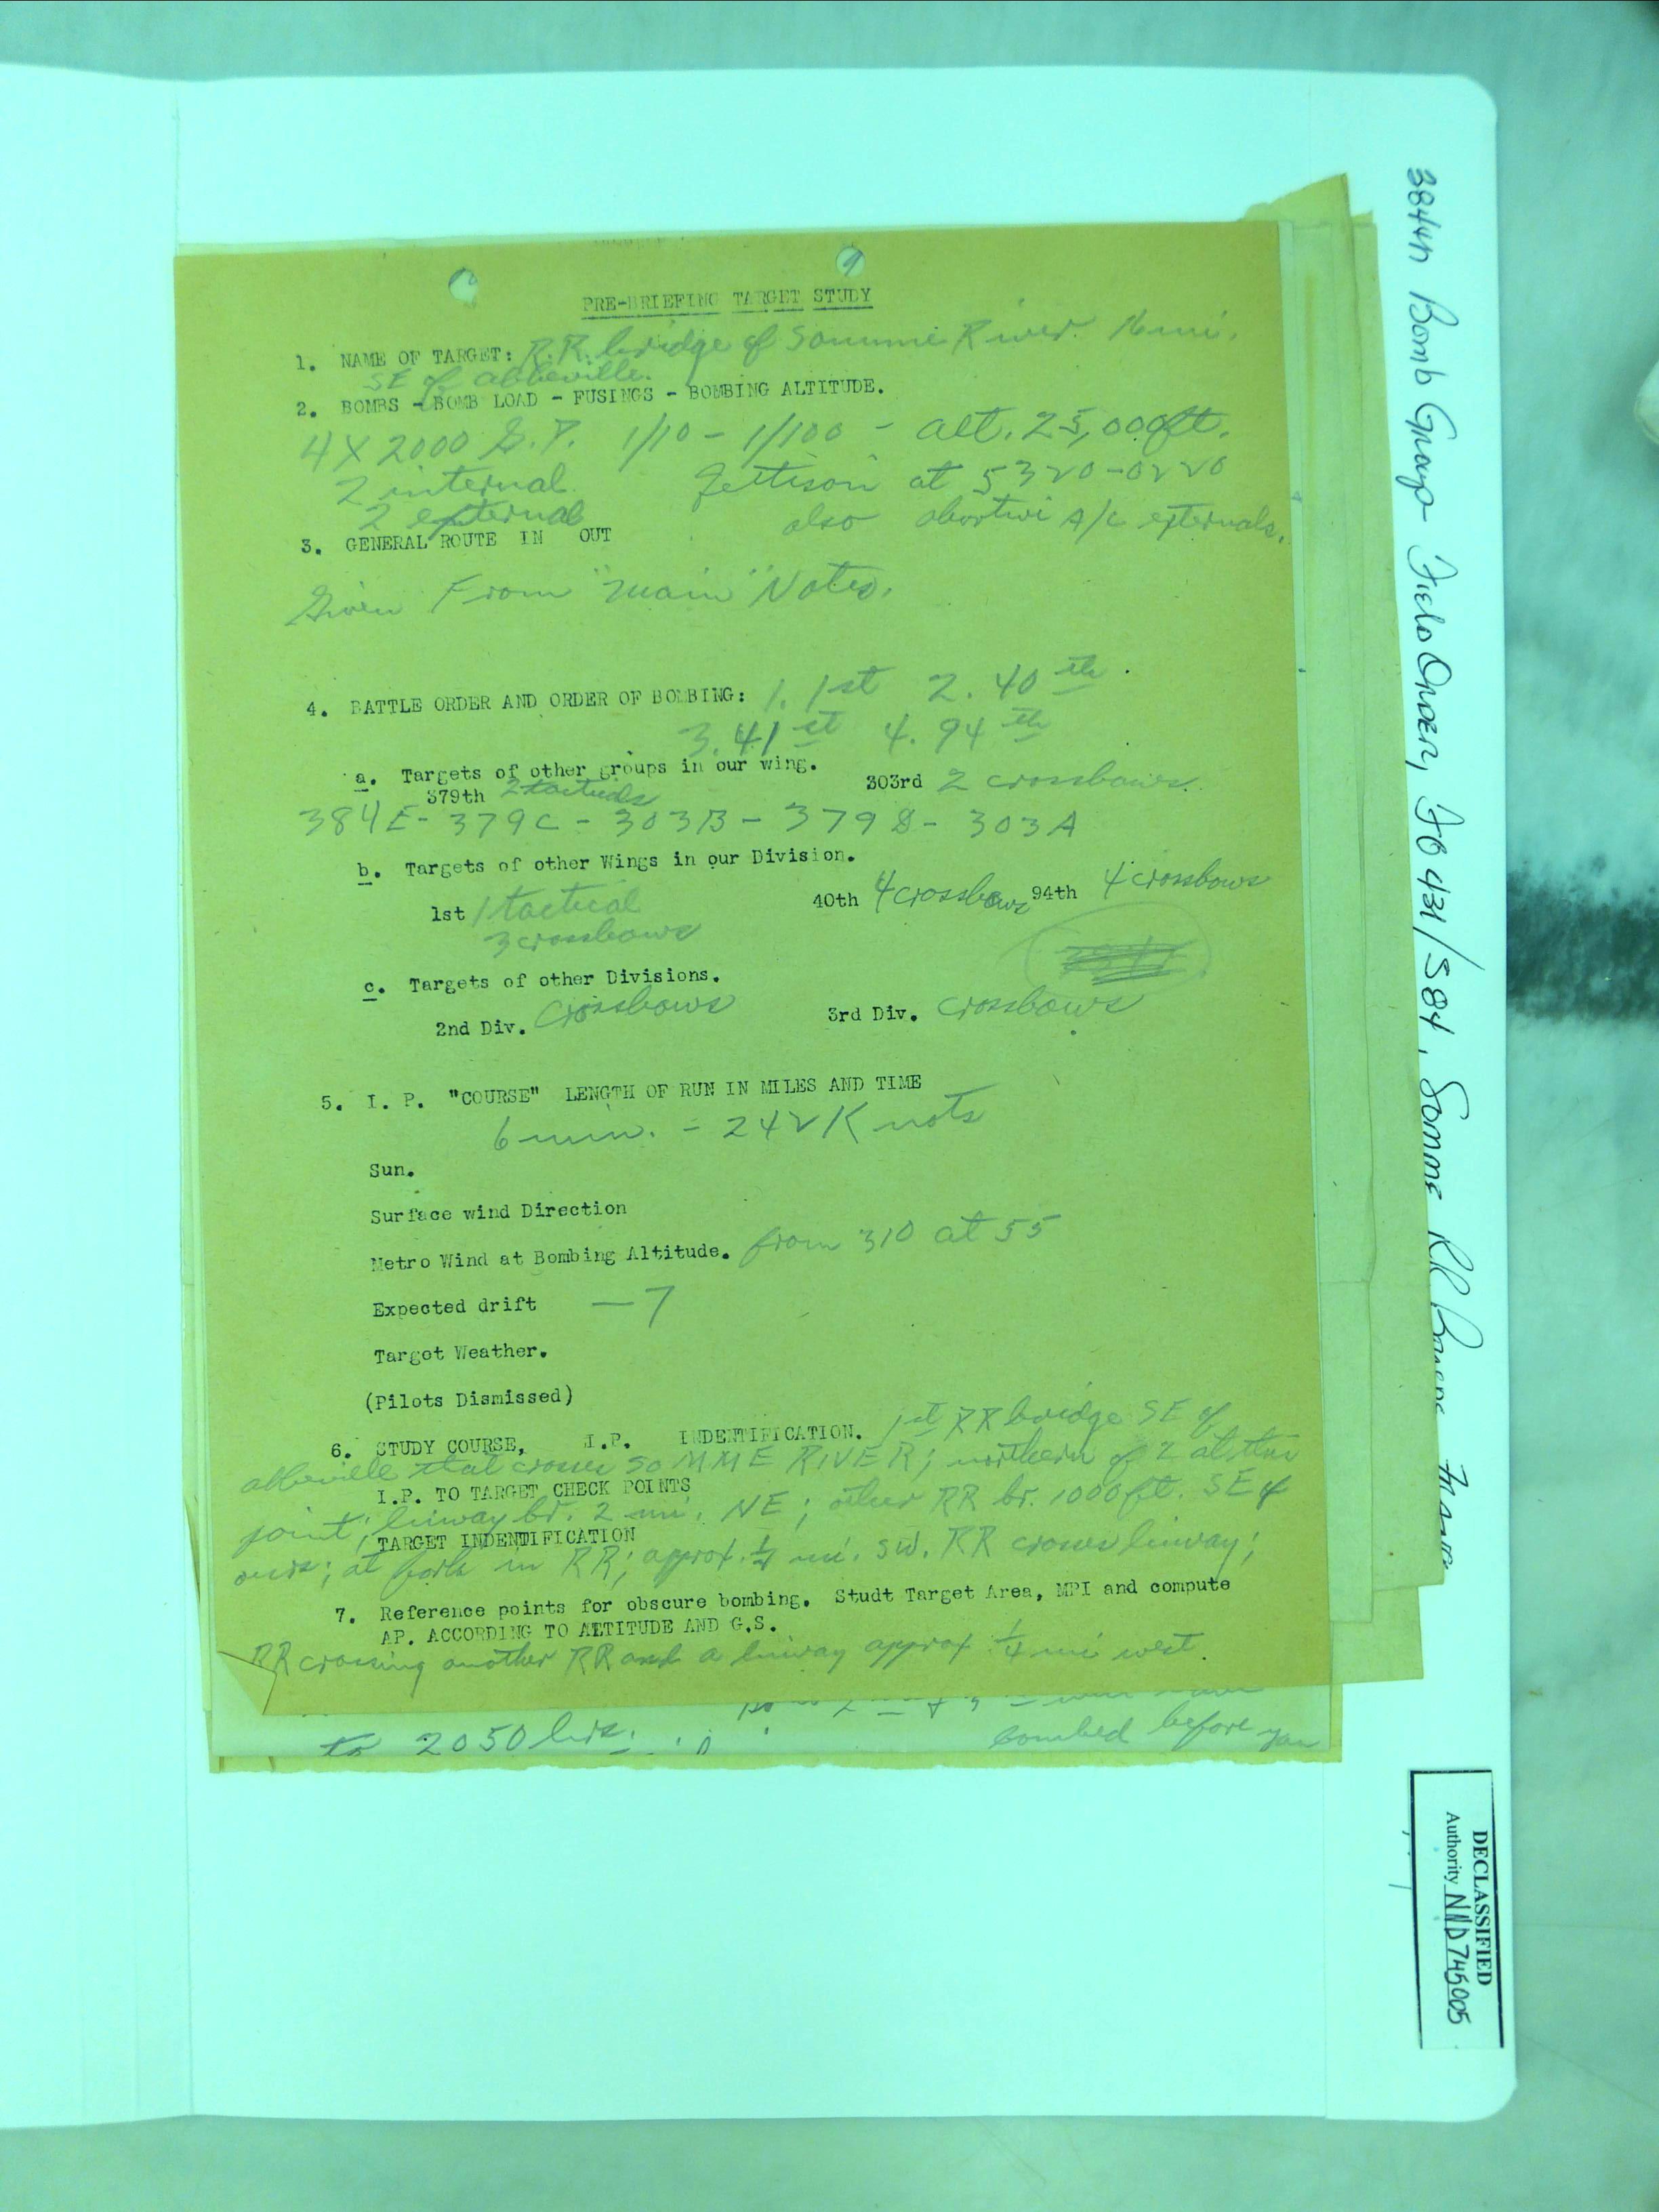 PRE-BRIEFING TARGET STUDY
1. NAME OF TARGET: R.R. bridge of Somme River. 16 mi.
SE of abbeville.
2. BOMBS - BOMB LOAD - FUSINGS - BOMBING ALTITUDE.
4 X 2000 G.P. 1/10 - 1/100 - alt. 25,000 ft.
2 internal. Jettison at 5320-0220
2 external also abortive A/C externals.
3. GENERAL ROUTE IN OUT
Given From "Main" Notes.
4. BATTLE ORDER AND ORDER OF BOMBING: 1. 1st 2. 40th
3. 41st 4. 94th
a. Targets of other groups in our wing.
379th 2 tacticals 303rd 2 crossbows.
384E - 379C - 303B - 379D - 303A
b. Targets of other Wings in our Division.
1st 1 tactical 40th 4 crossbows 94th 4 crossbows
3 crossbows
c. Targets of other Divisions.
2nd Div. Crossbows 3rd Div. Crossbows
5. I. P. "COURSE" LENGTH OF RUN IN MILES AND TIME
6 min. - 242 Knots
Sun.
Surface wind Direction
Metro Wind at Bombing Altitude. from 310 at 55
Expected drift - 7
Target Weather.
(Pilots Dismissed)
6. STUDY COURSE, I.P. INDENTIFICATION. 1st RR bridge SE of
abbeville that crosses SOMME RIVER; northern of 2 at this
I.P. TO TARGET CHECK POINTS
point; hiway br. 2 mi. NE; other RR br. 1000 ft. SE of
TARGET INDENTIFICATION
ours; at fork in RR; approx. 1/4 mi. SW. RR crosses hiway;
7. Reference points for obscure bombing. Studt Target Area, MPI and compute
AP. ACCORDING TO ALTITUDE AND G.S.
RR crossing another RR and a hiway approx 1/4 mi west.
to 2050 hrs.
bombed before you
384th Bomb Group Field Order, FO 431/S84, Somme RR Bridge France
DECLASSIFIED
Authority NND 745005